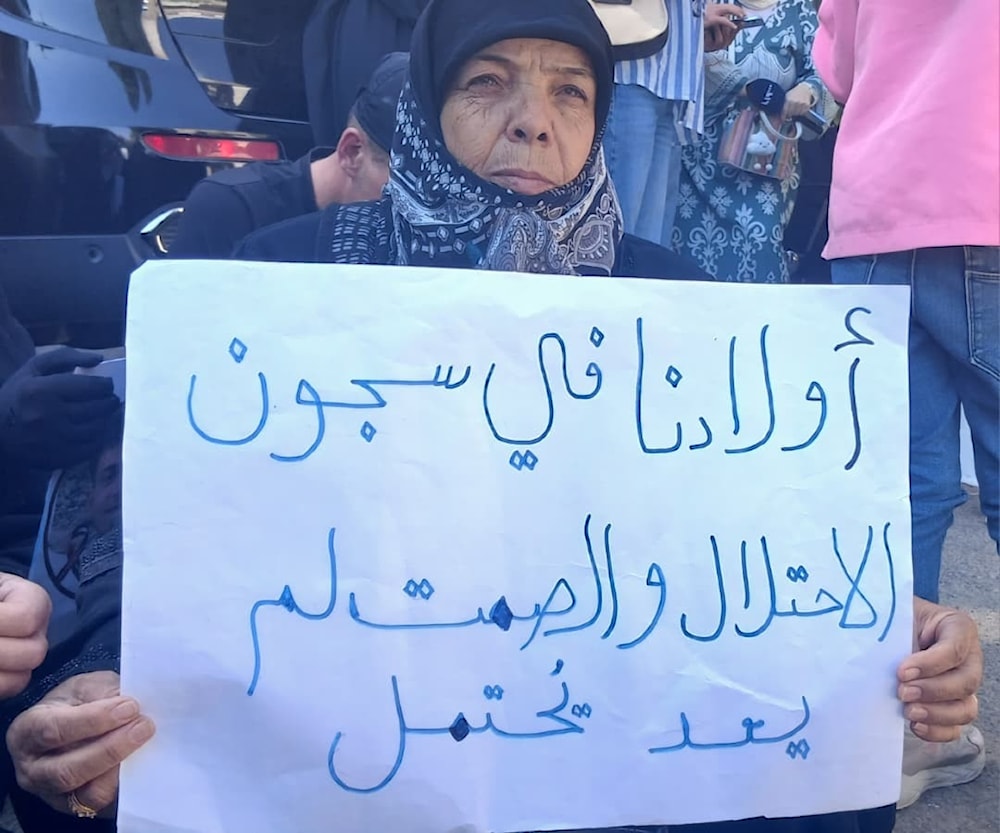 أولادنا في سجون
الاحتلال والصمت لم
يعد يُحتمل